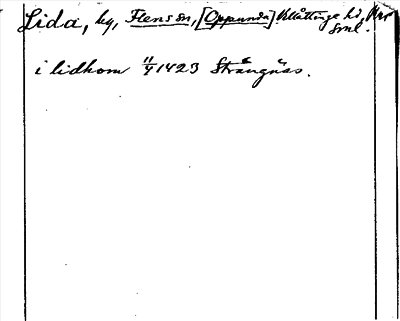 Lida, hg, Flens sn, [Oppunda] Villåttinge hd,
Sml.
i lidhom 11/4 1423 Strängnäs.